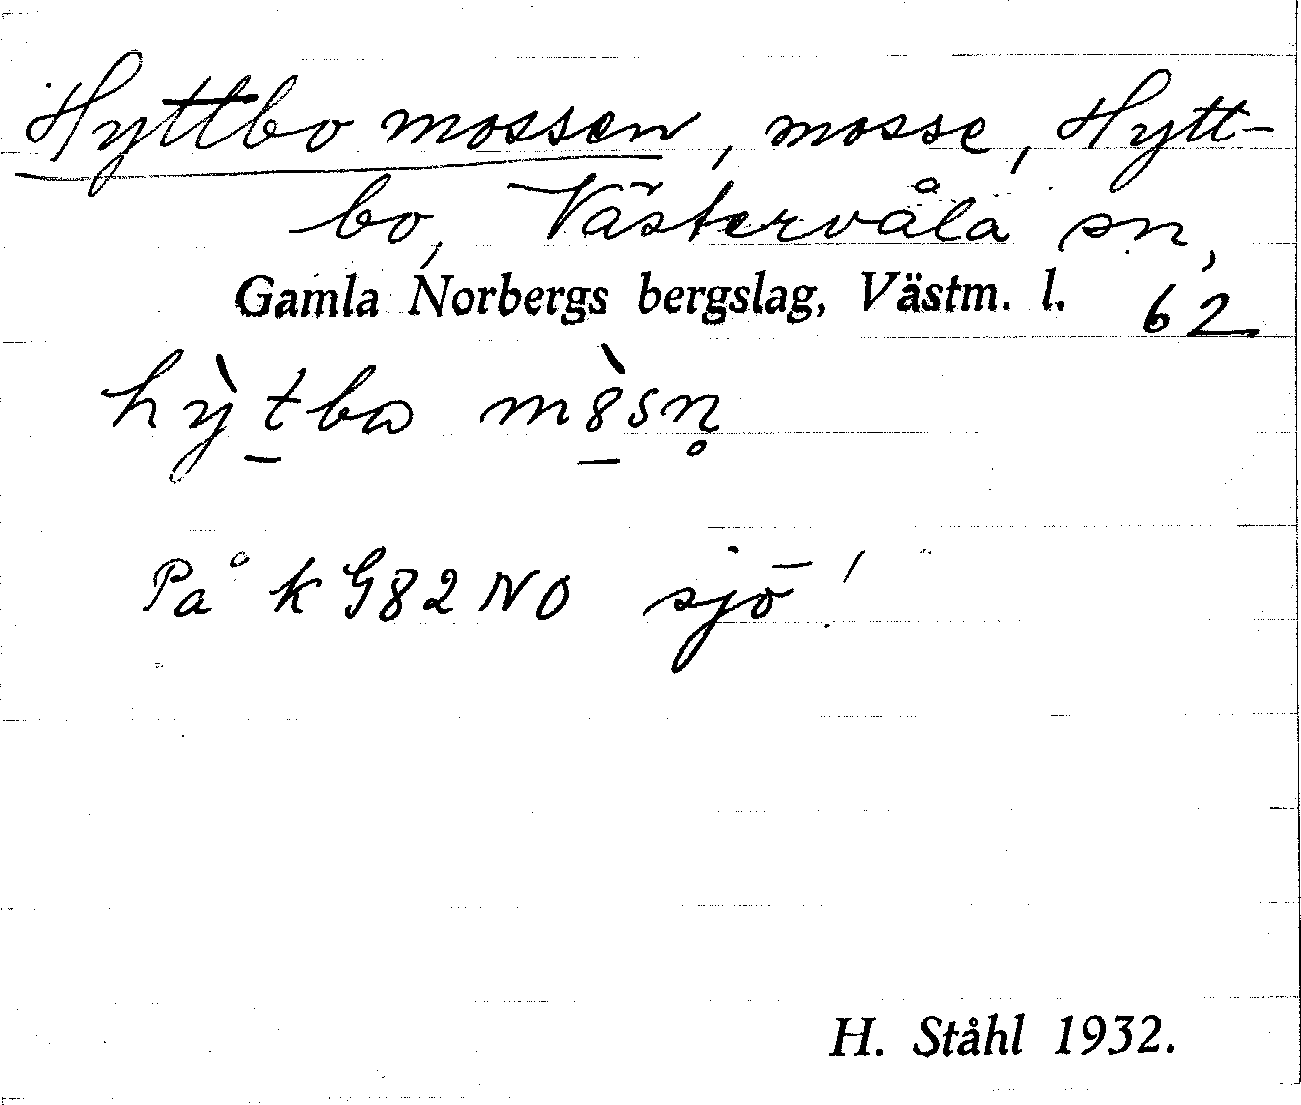 Hyttbo mossen, mosse, Hytt-
bo, Västervåla sn,
Gamla Norbergs bergslag, Västm. l. 62
hỳt̲bω m8̲̀sn̥
På k G82NO sjö!
H. Ståhl 1932.